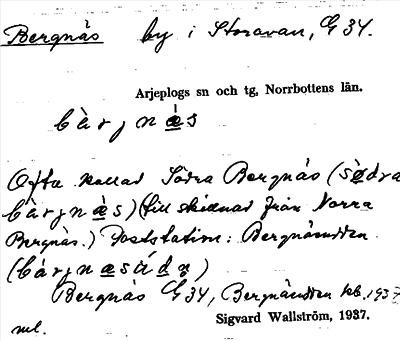 Bergnäs by i Storavan, G 34.
Arjeplogs sn och tg, Norrbottens län.
bàrjnæ̀s
Ofta kallad Södra Bergnäs (sødra
bàrjnæ̀s) (till skillnad från Norra
Bergnäs.) Poststation: Bergnäsudden
Bergnäs G 34, Bergnäsudden kb. 1937
ml.
Sigvard Wallström, 1937.